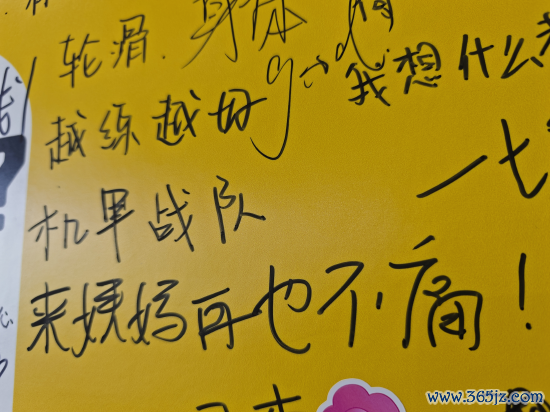 轮滑.身体
good
我想什么
越练越好
一七
机甲战队
来姨妈再也不痛！
www.365jz.com